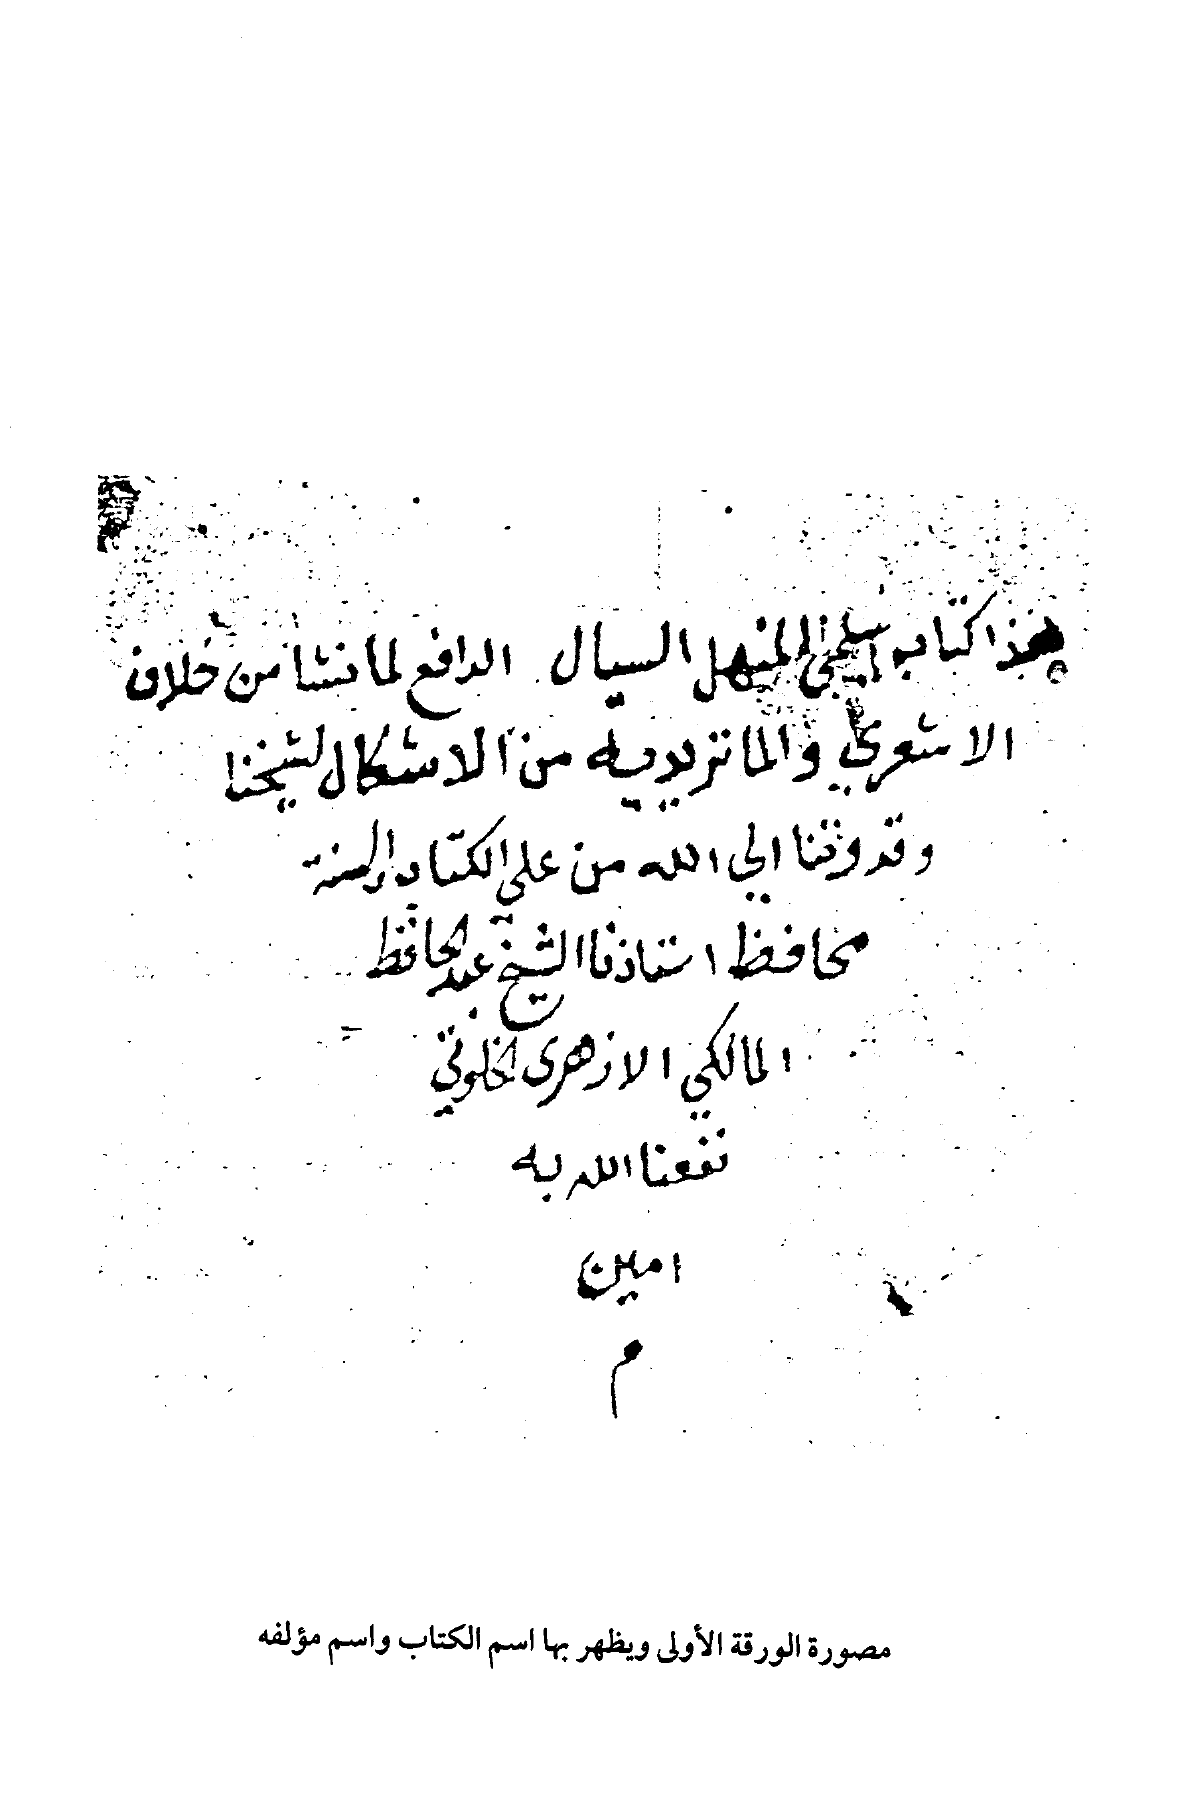 هذا كتاب المنهل السيال الدافع لما نشا من خلاف
الاشعري والماتريديه من الاشكال لشيخنا
وقدوتنا الي الله من على الكتاب والسنة
محافظ استاذنا الشيخ عبد الحافظ
المالكي الازهرى الخلوتي
نفعنا الله به
امين
م
مصورة الورقة الأولى ويظهر بها اسم الكتاب واسم مؤلفه